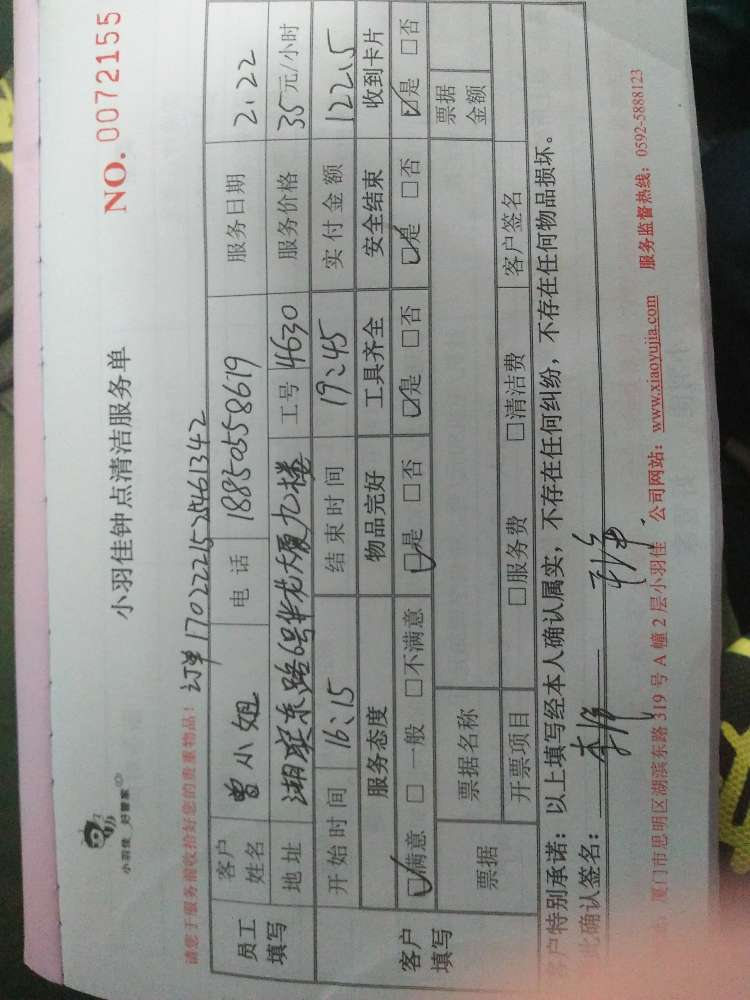 小羽佳 好管家
小羽佳钟点清洁服务单
NO. 0072155
请您于服务前收拾好您的贵重物品! 订单1702221525461342
员工填写 客户姓名 曾小姐 电话 18850558619 服务日期 2.22
地址 湖滨东路6号华龙大厦九楼 工号 4630 服务价格 35元/小时
客户填写 开始时间 16:15 结束时间 19:45 实付金额 122.5
服务态度 物品完好 工具齐全 安全结束 收到卡片
☑满意 □一般 □不满意 ☑是 □否 ☑是 □否 ☑是 □否 ☑是 □否
票据 票据名称 票据金额
开票项目 □服务费 □清洁费 客户签名
客户特别承诺:以上填写经本人确认属实,不存在任何纠纷,不存在任何物品损坏。
此确认签名:
厦门市思明区湖滨东路319号A幢2层小羽佳 公司网站:www.xiaoyujia.com 服务监督热线:0592-5888123